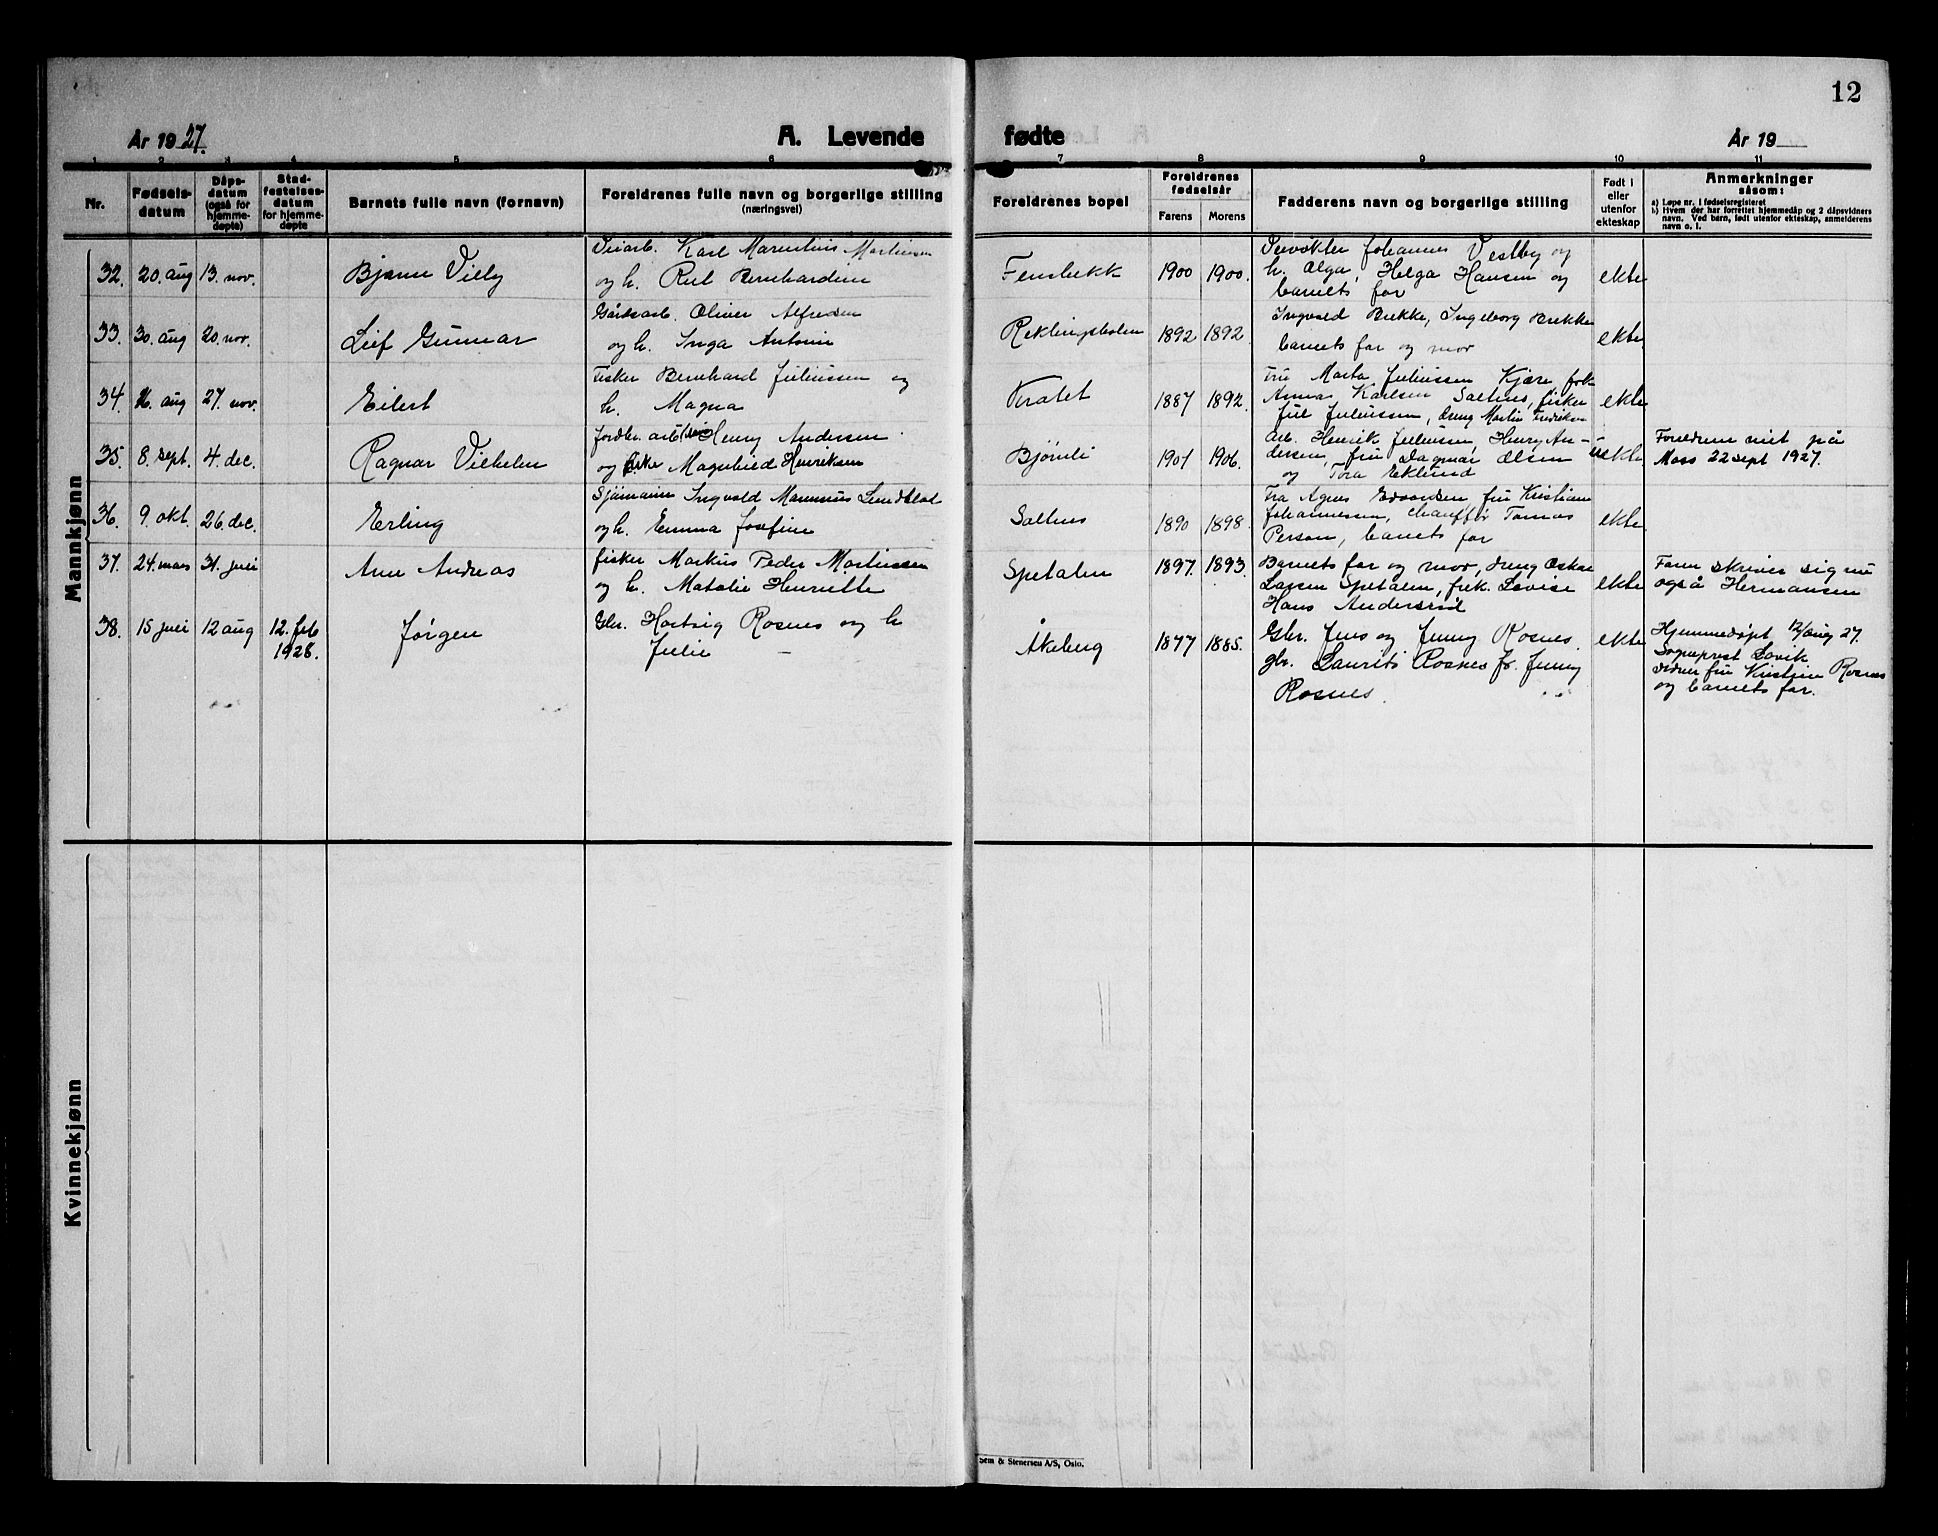 12
År 1927. A. Levende fødte År 19
1 2 3 4 5 6 7 8 9 10 11
Nr.
Fødsels-
datum
Dåps-
datum
(også for
hjemme-
døpte)
Stad-
festelses-
datum
for hjemme-
døpte
Barnets fulle navn (fornavn)
Foreldrenes fulle navn og borgerlige stilling
(næringsvei)
Foreldrenes bopel
Foreldrenes
fødselsår
Farens Morens
Fadderens navn og borgerlige stilling
Født i
eller
utenfor
ekteskap
Anmerkninger
såsom:
a) Løpe nr. i fødselsregisteret
b) Hvem der har forrettet hjemmedåp og 2 dåpsvidners
navn. Ved barn, født utenfor ekteskap, anmelderens
navn o. l.
Mannkjønn
32. 20. aug 13. nov.
Karl Marentius Martinsen
og h. Bernhardine
1900 1900.
Johannes Vestby og
h. Olga, Helga Hansen og
barnets far
ekte
33. 30. aug 20. nov. Leif Gunnar
Gårdsarb. Oliver Alfredsen
og h. Inga Antonie
1892 1892.
Ingvald Brekke, Ingeborg Brekke
barnets far og mor
ekte
34. aug 27. nov. Eilert
Fisker Bernhard Juliussen og
h. Magna
1887 1892.
Fru Marta Juliussen Kjære, frk.
Annas Karlsen Saltnes, fisker
Juliussen, dreng Martin Fredriksen
ekte
35. 8. sept. 4. dec. Ragnar Vilhelm
Henry Andersen
og Magnhild Henriksen
Bjørnli 1901 1906.
Arb. Henrik Juliussen, Henry An-
dersen, fru Dagmar Olsen
og Tora Eklund
uekte
Foreldrene viet på
Moss 22 sept 1927.
36. 9. okt. 26. dec. Erling
Sjømann Ingvald Lundblad
og h. Emma Josefine
Saltnes 1890 1898.
Fru Agnes Edvardsen, fru Kristiane
Johannessen, chauffør Tomas
Person, barnets far
ekte
37. 24. mars 31. juli Arne Andreas
fisker Markus Peder Martinsen
og h. Natalie Henriette
Spetalen 1897. 1893.
Barnets far og mor, dreng Oskar
Larsen Spetalen, frk. Lovise
Hans Andersrød
ekte
Faren skriver sig nu
også Hermansen
38. 15 juli 12 aug 12. feb
1928.
Jørgen
Gbr. Hartvig Rosnes og h
Julie
Åkeberg 1877 1885.
Gbr. Jens og Jenny Rosnes.
gbr. Laurits Rosnes fr. Jenny
Rosnes.
ekte
Hjemmedøpt 12/aug 27.
Sogneprest Løvik
vidner fru Kristine Rosnes
og barnets far.
Kvinnekjønn
Sem & Stenersen A/S, Oslo.